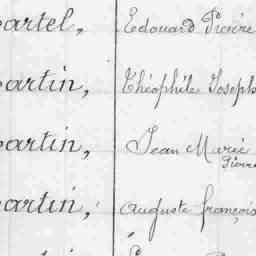 artel, Edouard Pierre
artin, Théophile Joseph
artin, Jean Marie
Pierre
artin, auguste françois